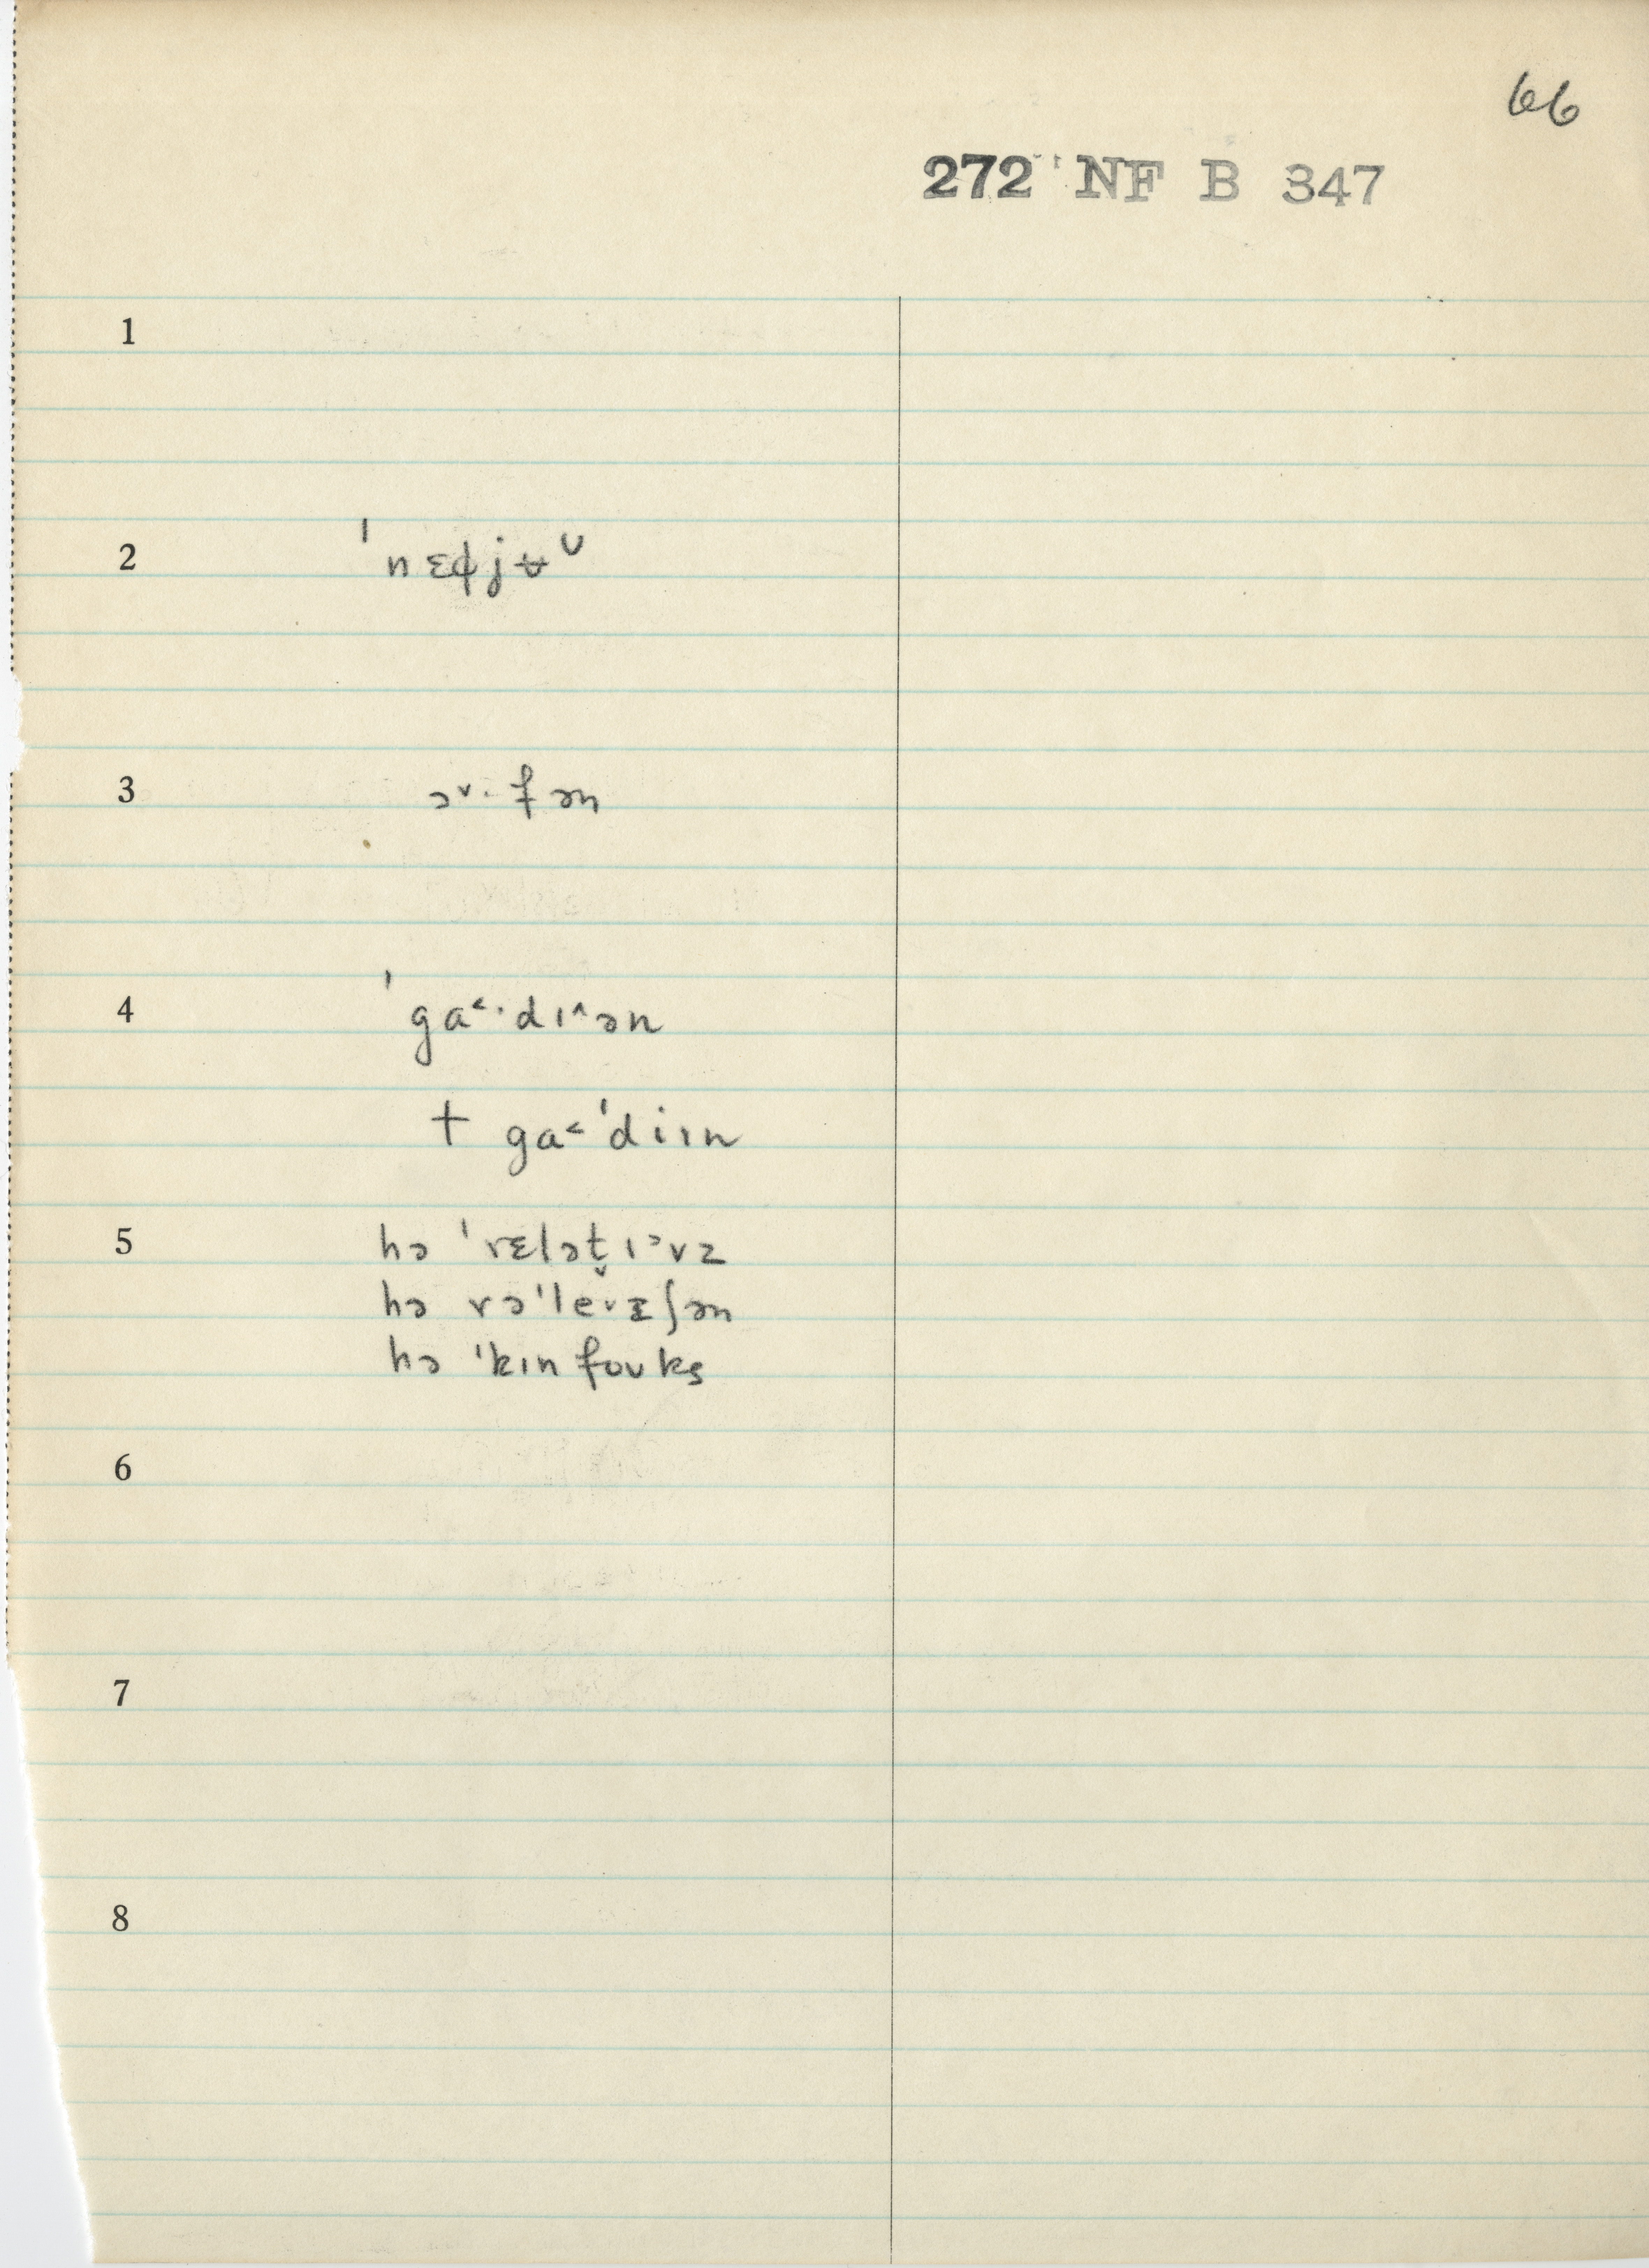 66
272 NF B 347
1
2 ˈnɛɸjʉᴗ
3 ɔ˅·fən
4 ˈga˂·dɪ˄ən
† ga˂ˈdiɪn
5 hə ˈrɛlət̬ɪ˃vz
hə rəˈle·ɪʃən
hə ˈkɪn foʊks
6
7
8